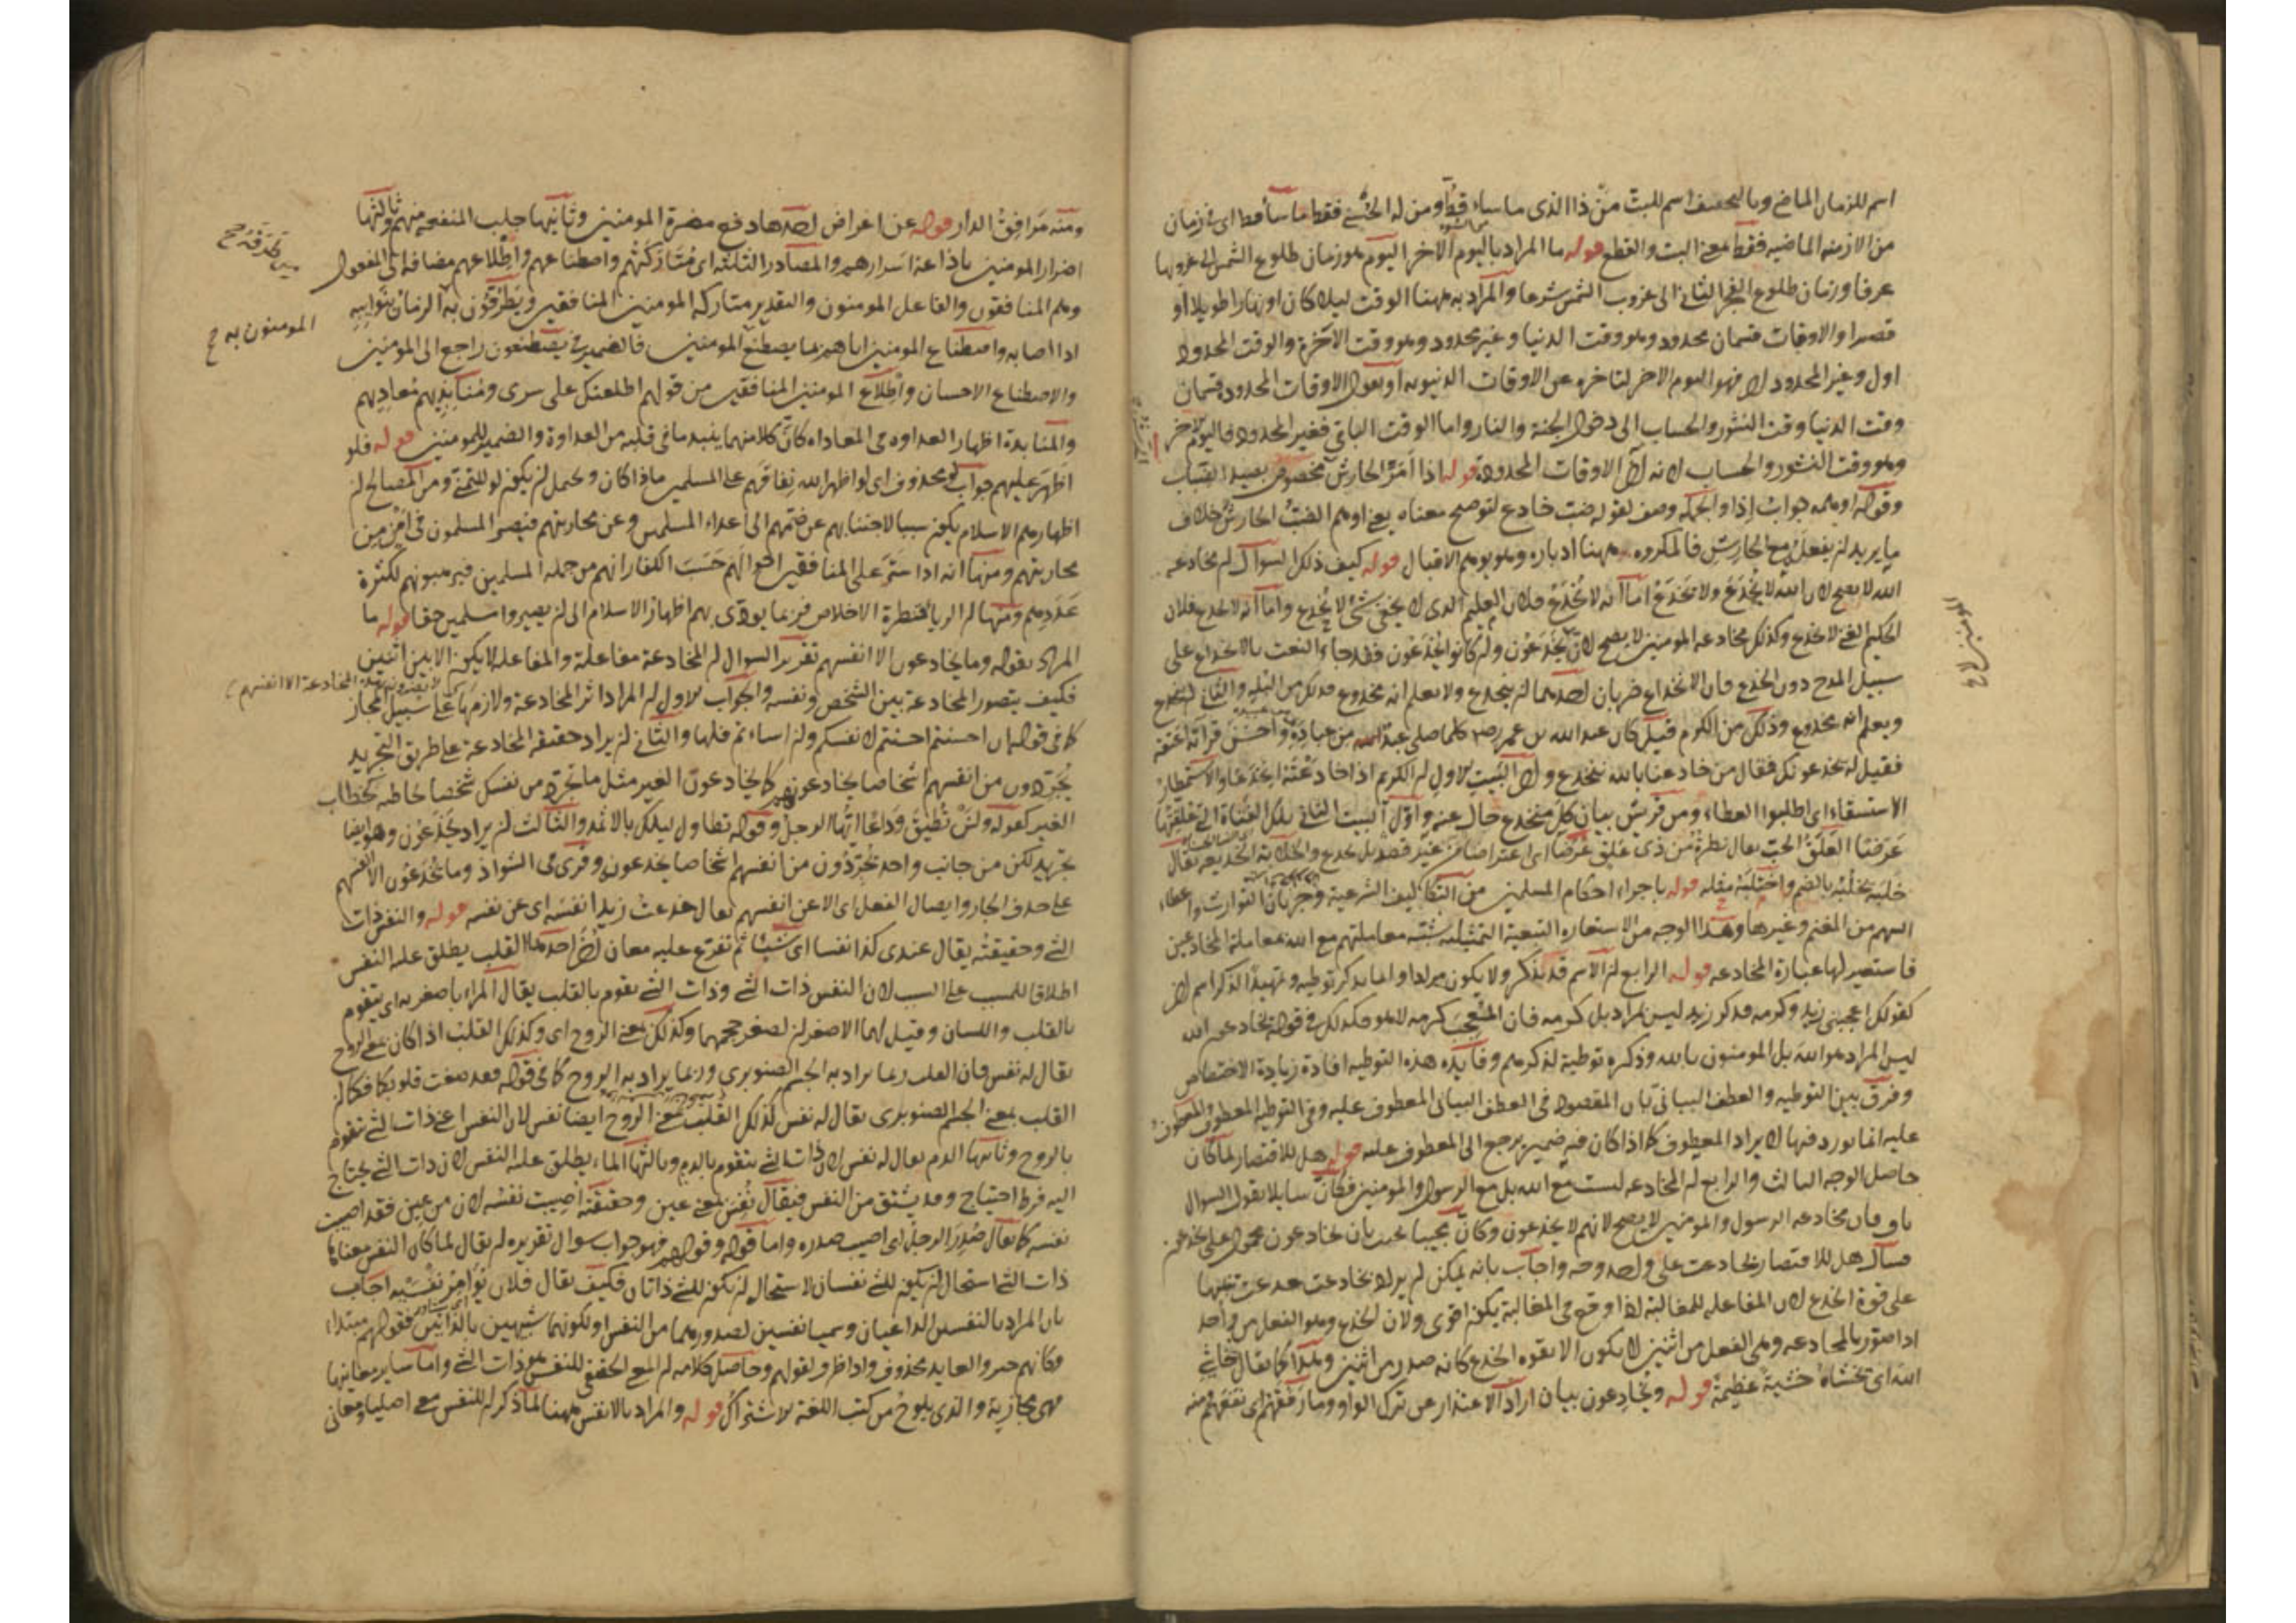 اسم للزمان الماضي وبالتخفيف اسم للبت من ذا الذي ما ساء قط ومن له الحسنى فقط ما ساء قط اى في زمان
من الازمنة الماضيه فقط بمعنى البت والقطع قوله ما المراد باليوم الآخر اليوم هو زمان طلوع الشمس الى غروبها
عرفا وزمان طلوع الفجر الثاني الى غروب الشمس شرعا والمراد به ههنا الوقت ليلا كان او نهارا طويلا او
قصيرا والاوقات قسمان محدود وهو وقت الدنيا وغير محدود وهو وقت الآخرة والوقت المحدود
اول وغير المحدود آخر فهو اليوم الاخر لتاخره عن الاوقات الدنيويه او نقول الاوقات المحدودة قسمان
وقت الدنيا وقت النشور والحساب الى دخول الجنة والنار واما الوقت الباقي فغير المحدود فاليوم الآخر
وهو وقت النشور والحساب لانه آخر الاوقات المحدودة قوله اذا امر الحارش مخصوص بصيد الضباب
وقوله اوهمه جواب اذا والجملة وصف لقوله ضب خادع لتوضيح معناه يعنى اوهم الضب الحارش خلاف
ما يريد ان يفعل مع الحارش فالمكروه ههنا ادباره وهو يوهم الاقبال قوله كيف ذلك السوال ان مخادعه
الله لا يصح لان الله لا يخدع ولا يخدع اما انه لا يخدع فلان العليم الذى لا يخفى شئ لا يخدع واما انه لا يخدع فلان
الحكيم الغني لا يخدع وكذلك مخادعة المومنين لا يصح لان يخدعون وان كانوا يخدعون فقد جاء النعت بالانخداع على
سبيل المدح دون الخدع فان الانخداع ضربان احدهما ان ينخدع ولا يعلم انه مخدوع فذلك من البله والثاني ان ينخدع
ويعلم انه مخدوع وذلك من الكرم قيل كان عبد الله بن عمر رضه كلما صلى عبد له من عباده واحسن قرائته اعتقه
فقيل له يخدعونك فقال من خادعنا بالله ننخدع واول البيت الاول ان الكريم اذا خادعته انخدعا والاستمطار
الاستسقاء اى اطلبوا العطاء ومن قريش بيان كل منخدع حال عنه واول البيت الثاني تلك الفتاة التى علقتها
عرضا العلق الحب يقال نظرة من ذى علق عرضا اى اعتراضا من غير قصد بل بخدع والخلابة الخديعه يقال
خلبه يخلبه بالضم واختلبه مثله قوله باجراء احكام المسلمين من التكاليف الشرعية وجريان التوارث واعطاء
السهم من المغنم وغيرها وهذا الوجه من الاستعاره التبعية التمثيلية شبه معاملتهم مع الله معاملة المخادعين
فاستعير لها عبارة المخادعه قوله الرابع ان الاسم قد يذكر ولا يكون مرادا وانما يذكر توطيه وتمهيدا لذكر اسم اخر
كقولك اعجبني زيد وكرمه فذكر زيد ليس لمراد بل كرمه فان المتعجب كرمه لا هو فكذلك في قوله يخادعون الله
ليس المراد هو الله بل المومنون بالله وذكره توطية لذكرهم وفايده هذه التوطيه افادة زيادة الاختصاص
وفرق بين التوطيه والعطف البياني بان المقصود في العطف البياني المعطوف عليه وفي التوطيه المعطوف والمعطوف
عليه انما يورد فيها لا يراد المعطوف كما اذا كان فيه ضمير يرجع الى المعطوف عليه قوله هل للاقتصار لما كان
حاصل الوجه الثالث والرابع ان المخادعه ليست مع الله بل مع الرسول والمومنين فكان سايلا يقول السوال
باق فان مخادعه الرسول والمومنين لا يصح لانهم لا يخدعون وكان مجيبا يجيب بان يخادعون محمول على يخدعون
فسال هل للاقتصار بخادعت على واحد وجه واجاب بانه يمكن ان يراد بخادعت خدعت تنبيها
على قوة الخدع لان المفاعله للمغالبة اذا وقع في المغالبة يكون اقوى ولان الخدع وهو الفعل من واحد
اذا صور بالمخادعه وهي الفعل من اثنين لا يكون الا لقوه الخدع كانه صدر من اثنين وهذا كما يقال خاشي
الله اى تخشاه خشية عظيمة قوله ويخادعون بيان اراد الاعتذار عن ترك الواو وما رفقهم اى نفعهم منه
المومنين لا
ومنه مرافق الدار قوله عن اغراض احدها دفع مضرة المومنين وثانيها جلب المنفعه منهم وثالثها
اضرار المومنين باذاعة اسرارهم والمصادر الثلثه اى متاركتهم واصطناعهم واطلاعهم مضافه الى المفعول
وهم المنافقون والفاعل المومنون والتقدير متاركة المومنين المنافقين ويطرقون به الزمان بنوايبه
اذا اصابه واصطناع المومنين اياهم بما يصطنع المومنين فالضمير في يصطنعون راجع الى المومنين
والاصطناع الاحسان واطلاع المومنين المنافقين من قولهم اطلعتك على سرى ومنابذيهم معاديهم
والمنابذة اظهار العداوه هي المعاداه كان كلا منهما ينبذ ما في قلبه من العداوة والضمير للمومنين قوله فلو
اظهر عليهم جواب لو محذوف اى لو اظهر الله نفاقهم على المسلمين ماذا كان ويحتمل ان يكون لو للتمني ومن المصالح ان
اظهارهم الاسلام يكون سببا لاجتنابهم عن ضمهم الى اعداء المسلمين وعن محاربتهم فيصير المسلمون في امن من
محاربتهم ومنها انه اذا ستر على المنافقين احوالهم حسب الكفار انهم من جملة المسلمين فيرهبونهم لكثرة
عددهم ومنها ان الريا قنطرة الاخلاص فربما يودى بهم اظهار الاسلام الى ان يصيروا مسلمين حقا قوله ما
المراد بقوله وما يخادعون الا انفسهم تقرير السوال ان المخادعة مفاعلة والمفاعلة لا يكون الا بين اثنين
فكيف يتصور المخادعة بين الشخص ونفسه والجواب الاول ان المراد اثر المخادعة ولازمها على سبيل المجاز
كما في قوله ان احسنتم احسنتم لانفسكم وان اساءتم فلها والثاني ان يراد حقيقة المخادعة على طريق التجريد
يجردون من انفسهم اشخاصا يخادعونهم كما يخادعون الغير مثل ما تجرد من نفسك شخصا تخاطبه كخطاب
الغير كقوله ولن تطيق وداعا ايها الرجل وقوله تطاول ليلك بالاثمد والثالث ان يراد يخدعون وهو ايضا
تجريد لكن من جانب واحد يجردون من انفسهم اشخاصا يخدعون وقرى في الشواذ وما يخدعون الا انفسهم
على حذف الجار وايصال الفعل اى الا عن انفسهم يقال خدعت زيدا نفسه اى عن نفسه قوله والنفس ذات
الشئ وحقيقته يقال عندى كذا نفسا اى شيئا ثم تفرع عليه معان اخر احدها القلب يطلق عليه النفس
اطلاقا للمسبب على السبب لان النفس ذات الشئ وذات الشئ يقوم بالقلب يقال المراء باصغريه اى يتقوم
بالقلب واللسان وقيل لهما الاصغران لصغر حجمهما وكذلك بمعنى الروح اى وكذلك القلب اذا كان بمعنى الروح
يقال له نفس فان القلب ربما يراد به الجسم الصنوبرى وربما يراد به الروح كما في قوله فقد صغت قلوبكما فكما ان
القلب بمعنى الجسم الصنوبرى يقال له نفس كذلك القلب بمعنى الروح ايضا نفس لان النفس اعنى ذات الشئ يتقوم
بالروح وثانيها الدم يقال له نفس لان ذات الشئ يتقوم بالدم وثالثها الماء يطلق عليه النفس لان ذات الشئ يحتاج
اليه فرط احتياج وقد يشتق من النفس فيقال نفس بمعنى عين وحقيقته اصيبت نفسه لان من عين فقد اصيبت
نفسه كما يقال صدر الرجل اى اصيب صدره واما قوله وقولهم فهو جواب سوال تقريره ان يقال لما كان النفس معناها
ذات الشئ استحال ان يكون للشئ نفسان لاستحالة ان يكون للشئ ذاتان فكيف يقال فلان يؤامر نفسيه اجاب
بان المراد بالنفسين الداعيان وسميا نفسين لصدورهما من النفس او لكونهما شبيهين بالذاتين فقولهم مبتداء
وكانهم خبر والعايد محذوف واذا ظرف لقولهم وحاصل كلامه ان المعنى الحقيقي للنفس هو ذات الشئ واما ساير معانيها
فهي مجازية والذى يلوح من كتب اللغة الاشتراك قوله والمراد بالانفس ههنا لما ذكر ان للنفس معنى اصليا ومعاني
المومنون به